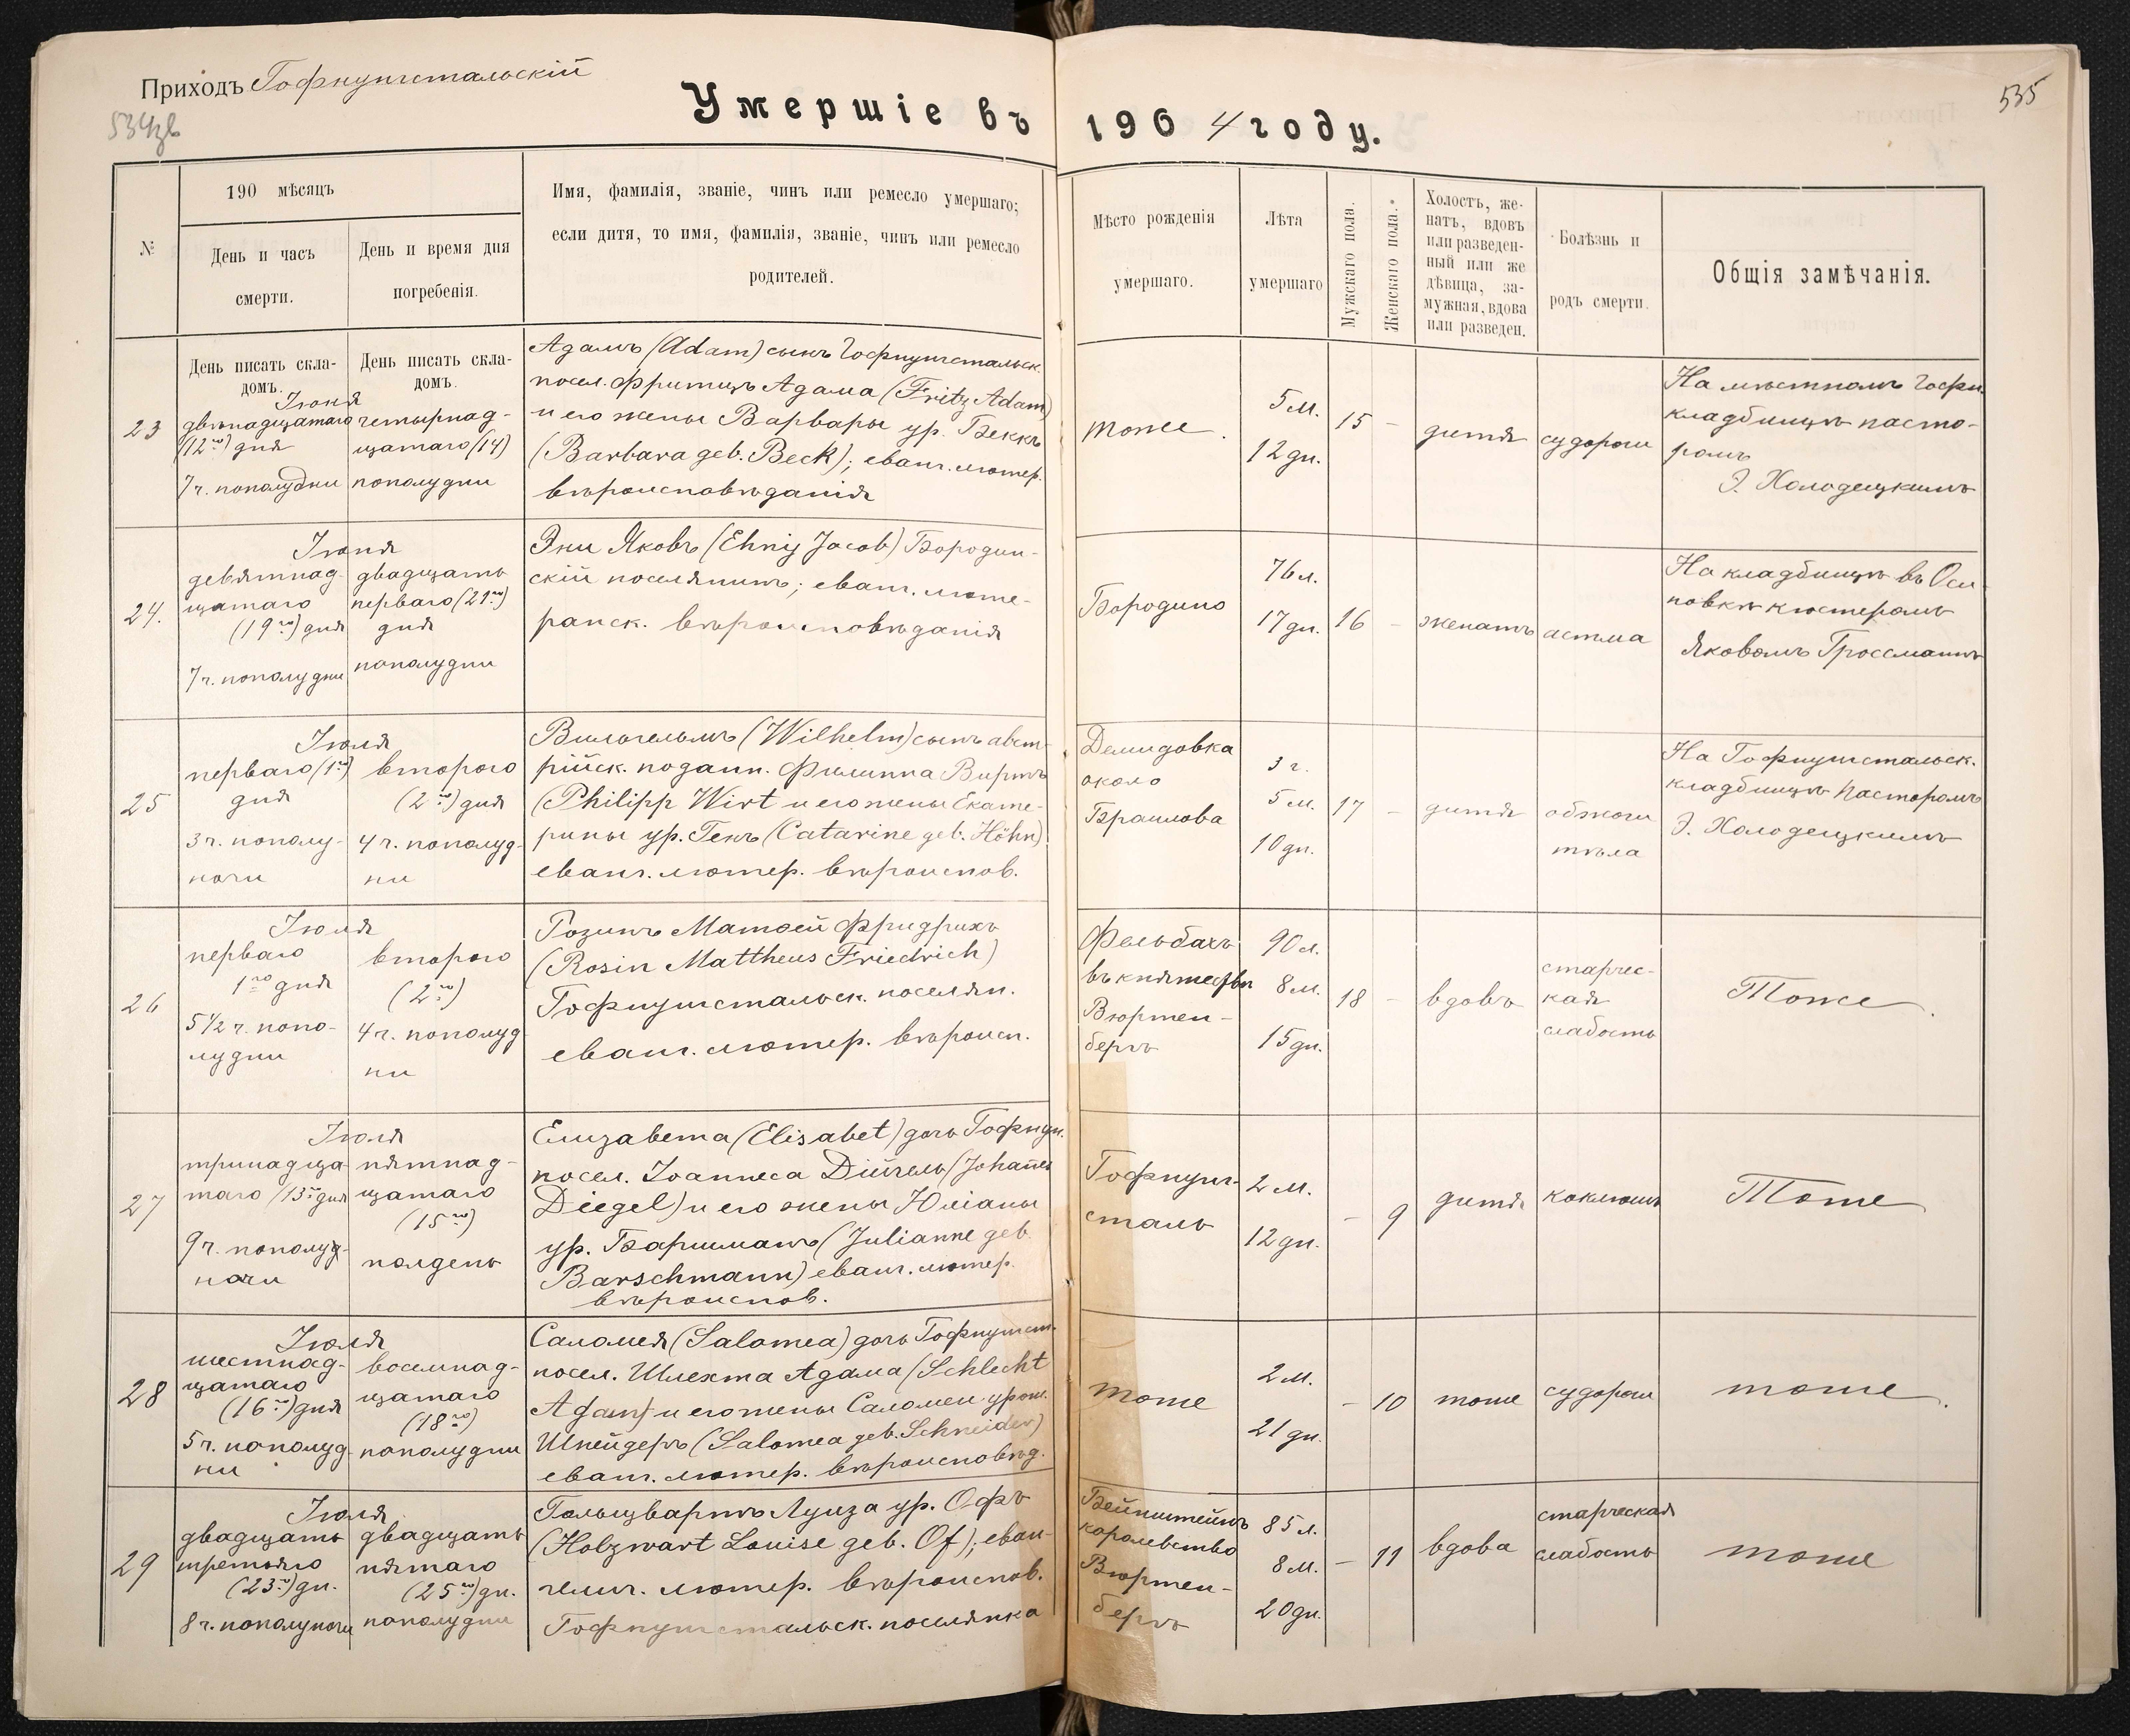 Приходъ Гофнунгстальскій
534зв
Умершіе въ
1904 году.
535
№
190 мѣсяцъ
День и часъ
смерти.
День и время дня
погребенія.
Имя, фамилія, званіе, чинъ или ремесло умершаго;
если дитя, то имя, фамилія, званіе, чинъ или ремесло
родителей.
Мѣсто рожденія
умершаго.
Лѣта
умершаго
Мужскаго пола.
Женскаго пола.
Холостъ, же-
натъ, вдовъ
или разведен-
ный или же
дѣвица, за-
мужная, вдова
или разведен.
Болѣзнь и
родъ смерти.
Общія замѣчанія.
День писать скла-
домъ.
День писать скла-
домъ.
23
Іюня
двѣнадцатаго
(12го) дня
7 ч. пополудни
четырнад-
цатаго (14)
пополудни
Адамъ (Adam) сынъ Гофнунгстальск.
посел. Фритцъ Адама (Fritz Adam)
и его жены Варвары ур. Беккъ
(Barbara geb. Beck); еванг. лютер.
вѣроисповѣданія
тоже.
5 м.
12 дн.
15
-
дитя
судороги
На мѣстномъ Гофн.
кладбищѣ пасто-
ромъ
Э. Холодецкимъ
24.
Іюня
девятнад-
цатаго
(19го) дня
7 ч. пополудни
двадцать
перваго (21го)
дня
пополудни
Эни Яковъ (Ehnij Jacob) Бородин-
скій поселянинъ; еванг. люте-
ранск. вѣроисповѣданія
Бородино
76 л.
17 дн.
16
-
женатъ
астма
На кладбищѣ въ Оси
повкѣ кюстеромъ
Яковомъ Гроссманнъ
25
Іюля
перваго (1го)
дня
3 ч. пополу-
ночи
второго
(2го) дня
4 ч. пополуд-
ни
Вильгельмъ (Wilhelm) сынъ авст-
рійск. поданн. Филиппа Виртъ
(Philipp Wirt и его жены Екате-
рины ур. Генъ (Catarine geb. Höhn)
еванг. лютер. вѣроиспов.
Демидовка
около
Браилова
3 г.
5 м.
10 дн.
17
-
дитя
обжоги
тѣла
На Гофнунгстальск.
кладбищѣ пасторомъ
Э. Холодецкимъ
26
Іюля
перваго
1го дня
5 1/2 ч. попо-
лудни
второго
(2го)
4 ч. пополуд-
ни
Розинъ Матѳей Фридрихъ
(Rosin Mattheus Friedrich)
Гофнунгстальск. поселян.
еванг. лютер. вѣроисп.
Фельбахъ
въ княжествѣ
Вюртен-
бергъ
90 л.
8 м.
15 дн.
18
-
вдовъ
старчес-
кая
слабость
Тоже.
27
Іюля
тринадца-
таго (13го дня
9 ч. пополуд-
ночи
пятнад-
цатаго
(15го)
полдень
Елизавета (Elisabet) дочь Гофнун.
посел. Іоаннеса Дійгель (Johannes
Diegel) и его жены Юліаны
ур. Баршманъ (Julianne geb.
Barschmann) еванг. лютер.
вѣроиспов.
Гофнунг-
сталь
2 м.
12 дн.
-
9
дитя
коклюшъ
Тоже
28
Іюля
шестнад-
цатаго
(16го) дня
5 ч. пополуд-
ни
восемнад-
цатаго
(18го)
пополудни
Саломея (Salomea) дочь Гофнунгст.
посел. Шлехта Адама (Schlecht
Adam) и его жены Саломеи урож.
Шнейдеръ (Salomea geb. Schneider)
еванг. лютер. вѣроисповѣд.
тоже
2 м.
21 дн.
-
10
тоже
судороги
тоже.
29
Іюля
двадцать
третьяго
(23го) дн.
8 ч. пополуночи
двадцать
пятаго
(25го) дн.
пополудни
Гольцвартъ Луиза ур. Офъ
(Holzwart Louise geb. Of); еван-
гелич. лютер. вѣроиспов.
Гофнунгстальск. поселянка
Бейнштейнъ
королевство
Вюртен-
бергъ
85 л.
8 м.
20 дн.
-
11
вдова
старческая
слабость
тоже